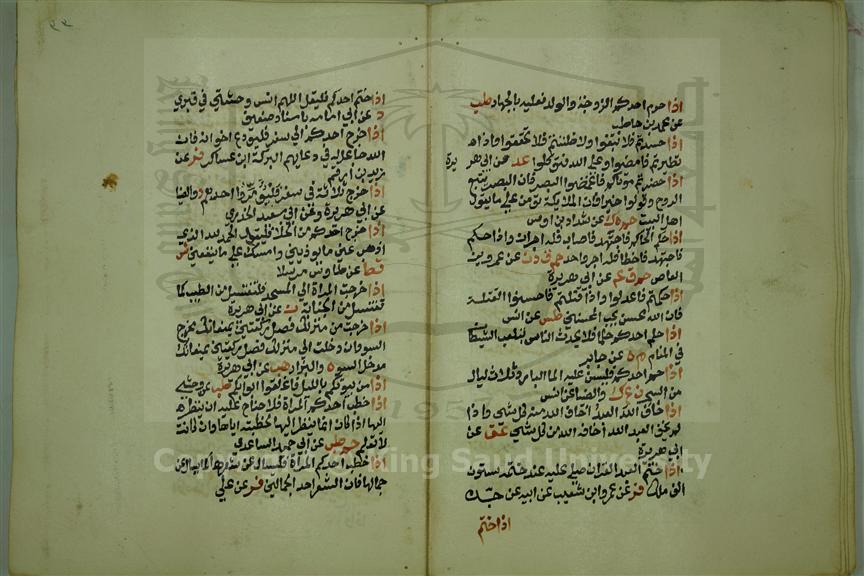 اذا حرم احدكم الزوجة والولد فعليه بالجهاد طب
عن محمد بن حاطب
اذا حسدتم فلا تبغوا واذا ظننتم فلا تحققوا واذا
تطيرتم فامضوا وعلى الله فتوكلوا عد عن ابي هريرة
اذا حضرتم موتاكم فاغمضوا البصر فان البصر يتبع
الروح وقولوا خيرا فان الملايكة تؤمن على ما يقول
اهل البيت حم ه ك عن شداد بن اوس
اذا حكم الحاكم فاجتهد فاصاب فله اجران واذا حكم
فاجتهد فاخطا فله اجر واحد حم ق د ن عن عمرو بن
العاص حم ق عم عن ابي هريرة
اذا حكمتم فاعدلوا واذا قتلتم فاحسنوا القتلة
فان الله محسن يحب المحسنين طس عن انس
اذا حلم احدكم حلما فلا يحدث الناس بتلعب الشيطان
في المنام م ه عن جابر
اذا حم احدكم فليسن عليه الماء البارد ثلاث ليال
من السحر ن ع ك والضيا عن انس
اذا خاف الله العبد اخاف الله منه كل شي واذا
لم يخف العبد الله اخافه الله من كل شي عق عن
ابي هريرة
اذا ختم العبد القران صلى عليه عند ختمه ستون
الف ملك فر عن عمرو ابن شعيب عن ابيه عن جده
اذا ختم
اذا ختم احدكم فليقل اللهم انس وحشتي في قبري
عن ابي امامه باسناد ضعيف
اذا خرج احدكم الي سفر فليودع اخوانه فان
الله جاعل له في دعايهم البركة ابن عساكر فر عن
زيد بن ارقم
اذا خرج ثلاثة في سفر فليؤمروا احدهم د والضيا
عن ابي هريرة وعن ابي سعيد الخدري
اذا خرج احدكم من الخلا فليقل الحمد لله الذي
اذهب عني ما يوذيني وامسك علي ما ينفعني ش
قط عن طاوس مرسلا
اذا خرجت المراة الي المسجد فلتغتسل من الطيب كما
تغتسل من الجنابة ن عن ابي هريرة
اذا خرجت من منزلك فصل ركعتين يمنعانك مخرج
السو وان دخلت الي منزلك فصل ركعتين يمنعانك
مدخل السو ه والبزار هب عن ابي هريرة
اذا خطب احدكم المراة فلا جناح عليه ان ينظر
اليها اذا كان انما ينظر اليها لخطبته اياها وان كانت
لا تعلم حم طب عن ابي حميد الساعدي
اذا خطب احدكم المراة فليسال عن شعرها كما يسال عن
جمالها فان الشعر احد الجمالين فر عن علي
Copyright © King Saud University
1957